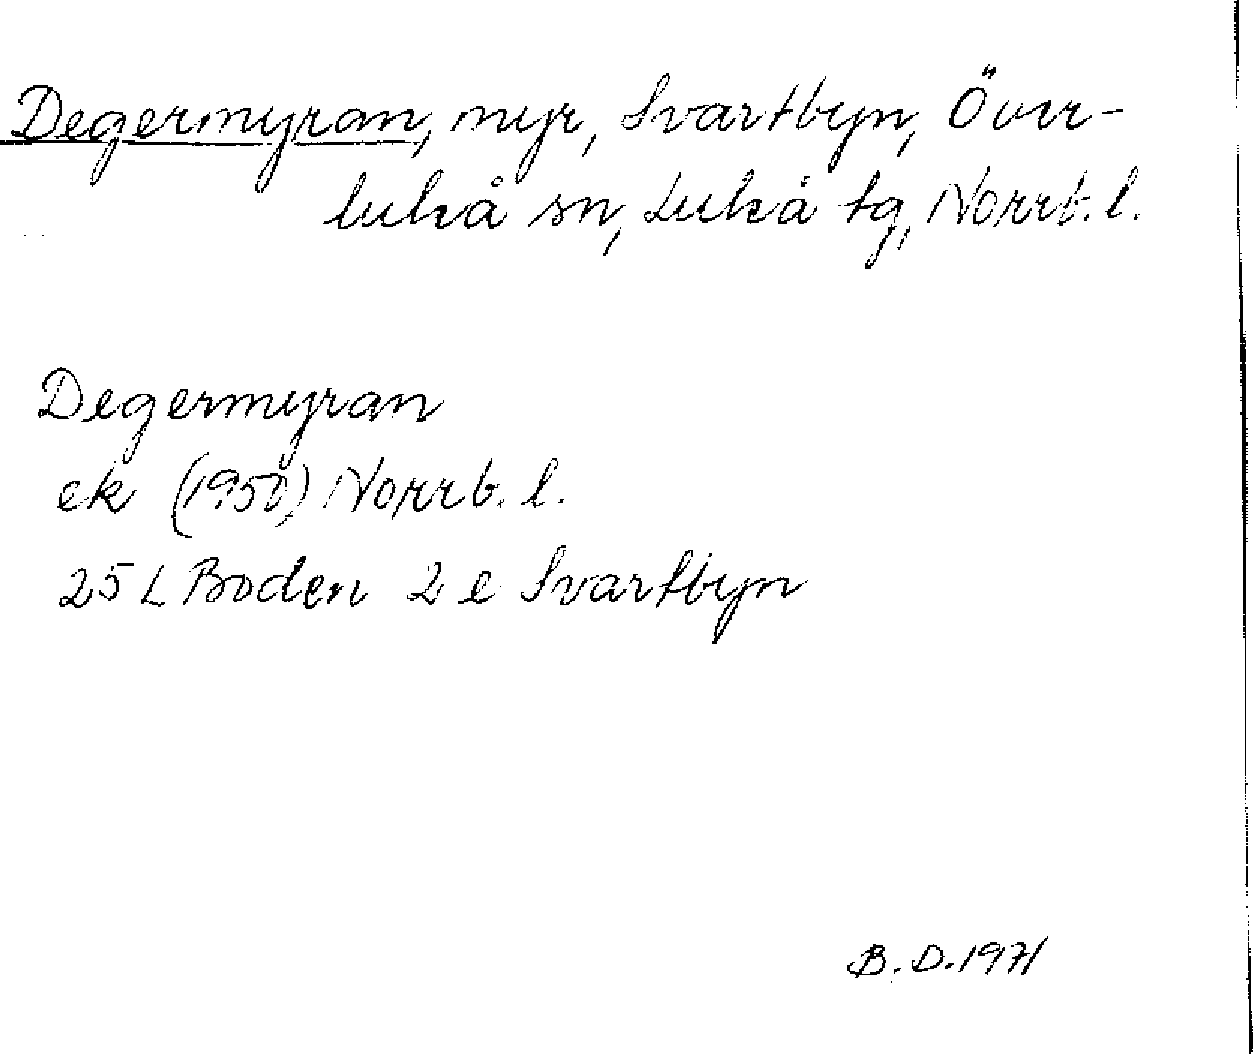 Degermyran, myr, Svartbyn, Över-
luleå sn, Luleå tg, Norrb. l.
Degermyran
ek (1950) Norrb. l.
25 L Boden 2 e Svartbyn
B. D. 1971